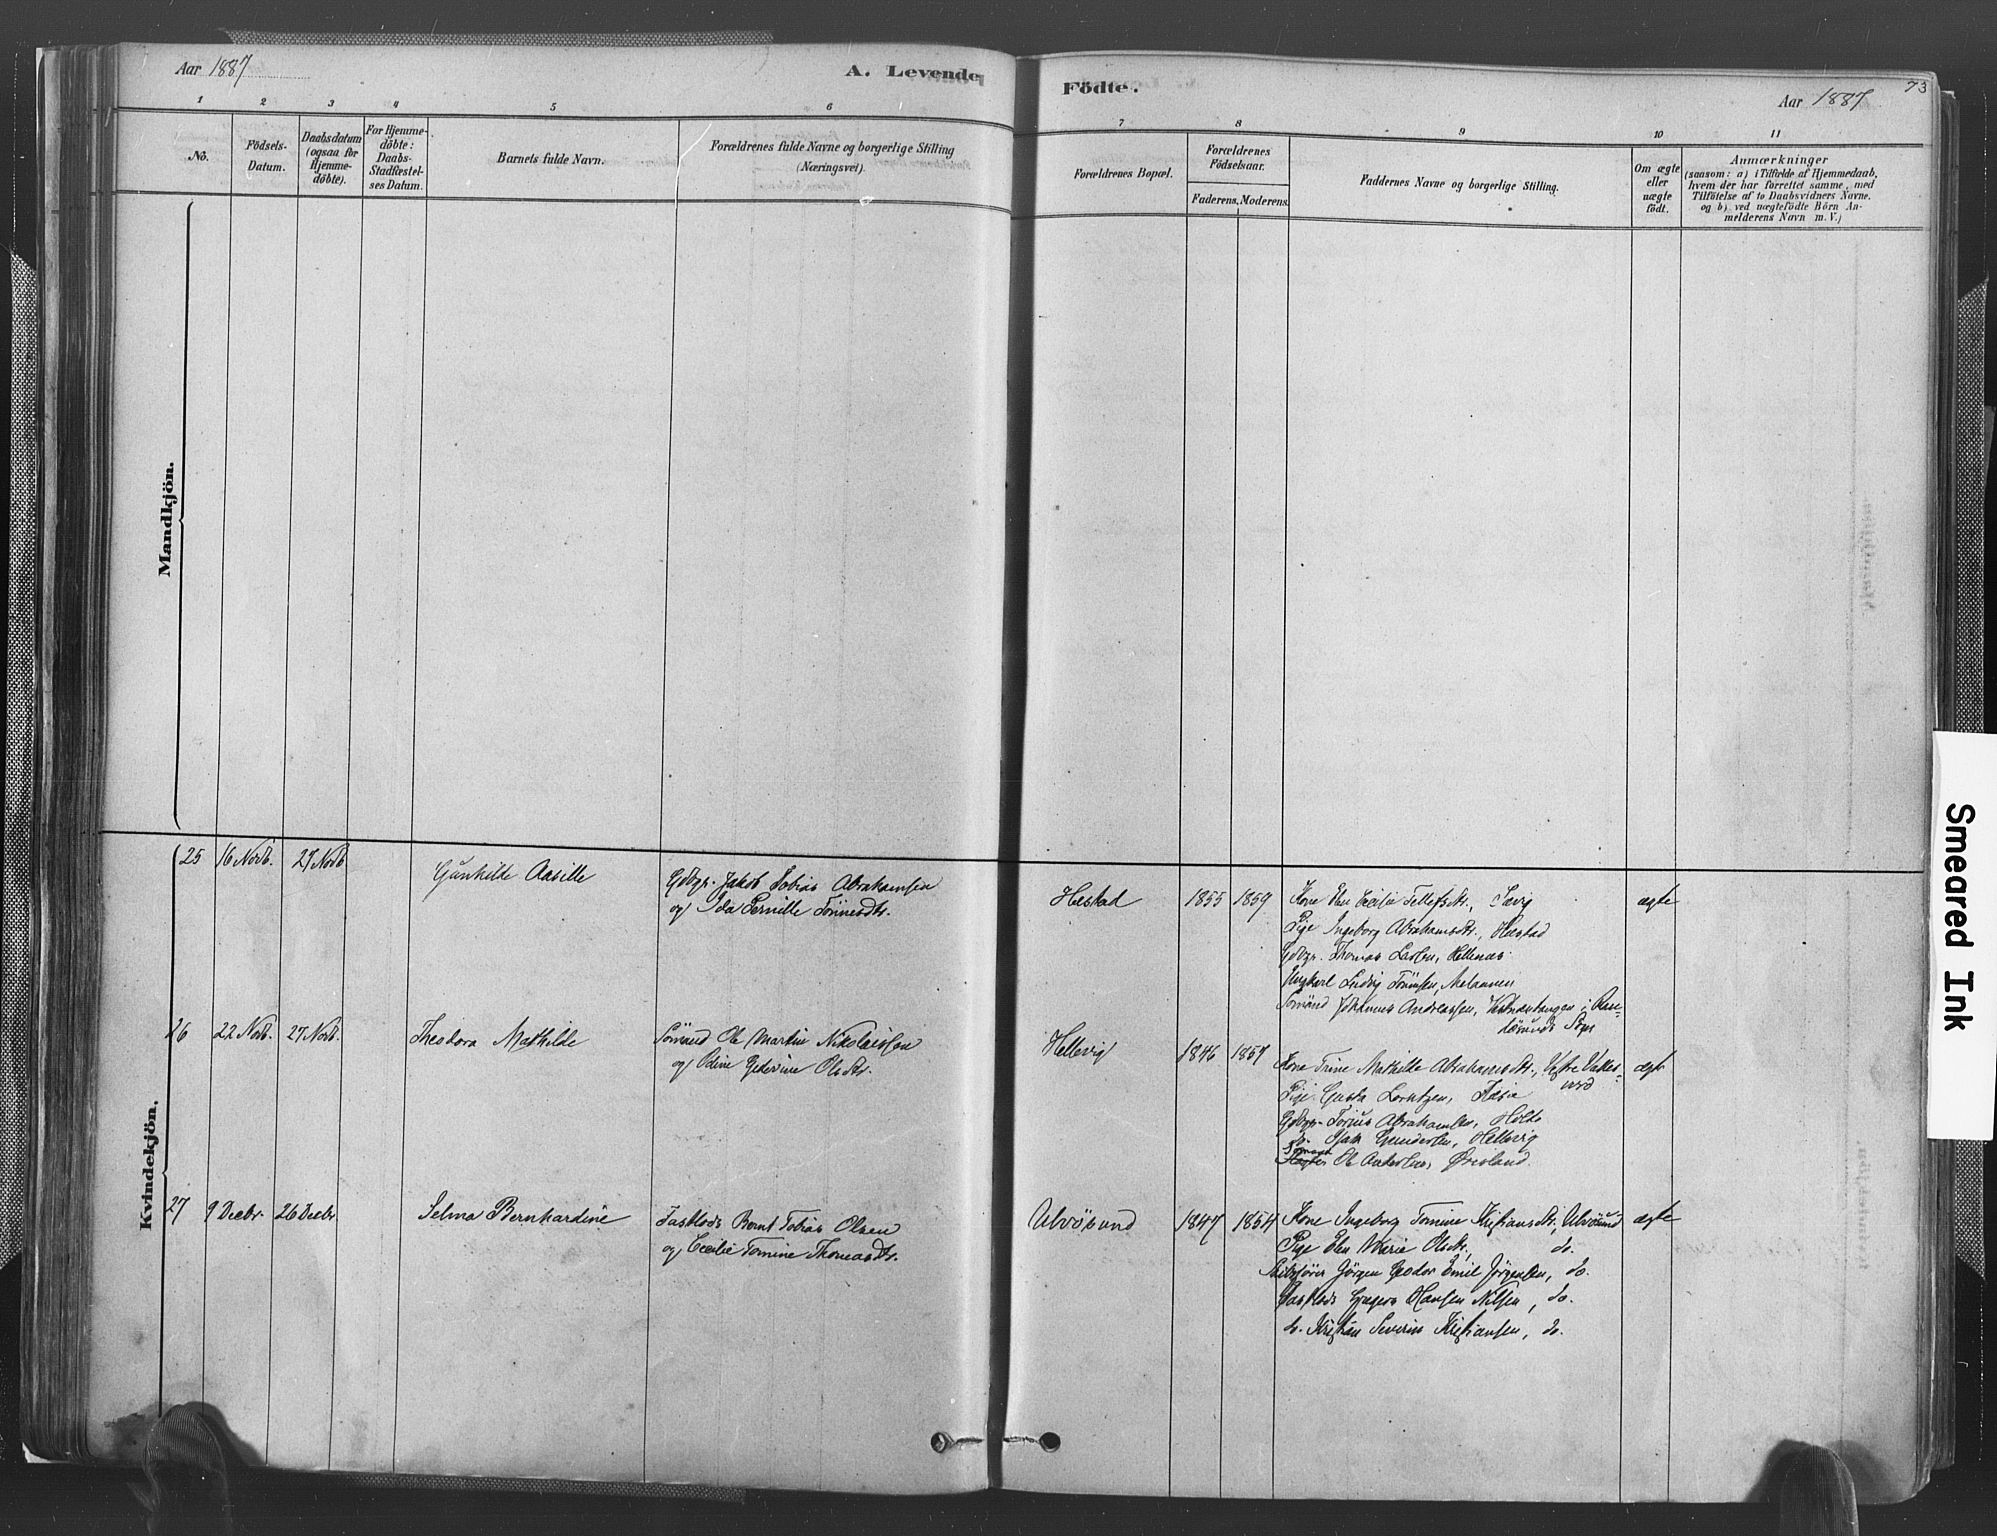 Aar 1887
A. Levende
Födte.
73
Aar 1887
1 2 3 4 5 6 7 8 9 10 11
No.
Födsels-
Datum.
Daabsdatum
(ogsaa for
Hjemme-
döbte).
For Hjemme-
döbte:
Daabs-
Stadfæstel-
ses Datum.
Barnets fulde Navn.
Forældrenes fulde Navne og borgerlige Stilling
(Næringsvei)
Forældrenes Bopæl.
Forældrenes
Födselsaar.
Faderens. Moderens.
Faddernes Navne og borgerlige Stilling.
Om ægte
eller
uægte
födt.
Anmærkninger
(saasom: a) i Tilfælde af Hjemmedaab,
hvem der har forrettet samme, med
Tilföielse af to Daabsvidners Navne.
og b) ved uægtefödte Börn An-
melderens Navn m. V.)
Mandkjön.
Kvindekjön.
25 16 Novb. 27 Novb
Gunhilde Aasille
Gdbgr. Jakob Tobias Abrahamsen
og Ida Pernille Tönnesdtr.
Hæstad 1855 1859
Kone Elen Cecilie Tellefsdtr.,
Pige Ingeborg Abrahamsdtr., Hæstad
Gdbgr. Thomas Larsen,
Ungkarl Ludvig Tönnesen,
Sömand Johannes Andreassen,
ægte
26 22 Novb. 27 Novb.
Theodora Mathilde
Sömand Ole Martin Nikolaissen
og Odine Gedrine Olsdtr.
Hellevig 1846 1857
Kone Trine Mathilde Abrahamsdtr., Vestre
Pige Gusta Lorntzen,
Gdbgr. Abrahamsen, Holte
do. Gundersen, Hellevig
Sömand Ole Andersen,
ægte
27 9 Decbr. 26 Decbr
Selma Bernhardine
Fastlods Bernt Tobias Olsen
og Cecilie Tomine Thomasdtr.
Ulvösund 1847 1854
Kone Ingeborg Tomine Kristiansdtr., Ulvösund
Pige Elen Marie Olsdtr., do.
Skibsförer Jörgen Emil Jörgensen, do.
Fastlods Hansen Nilsen, do.
do. Kristian Severin Kristiansen, do.
ægte
Smeared Ink